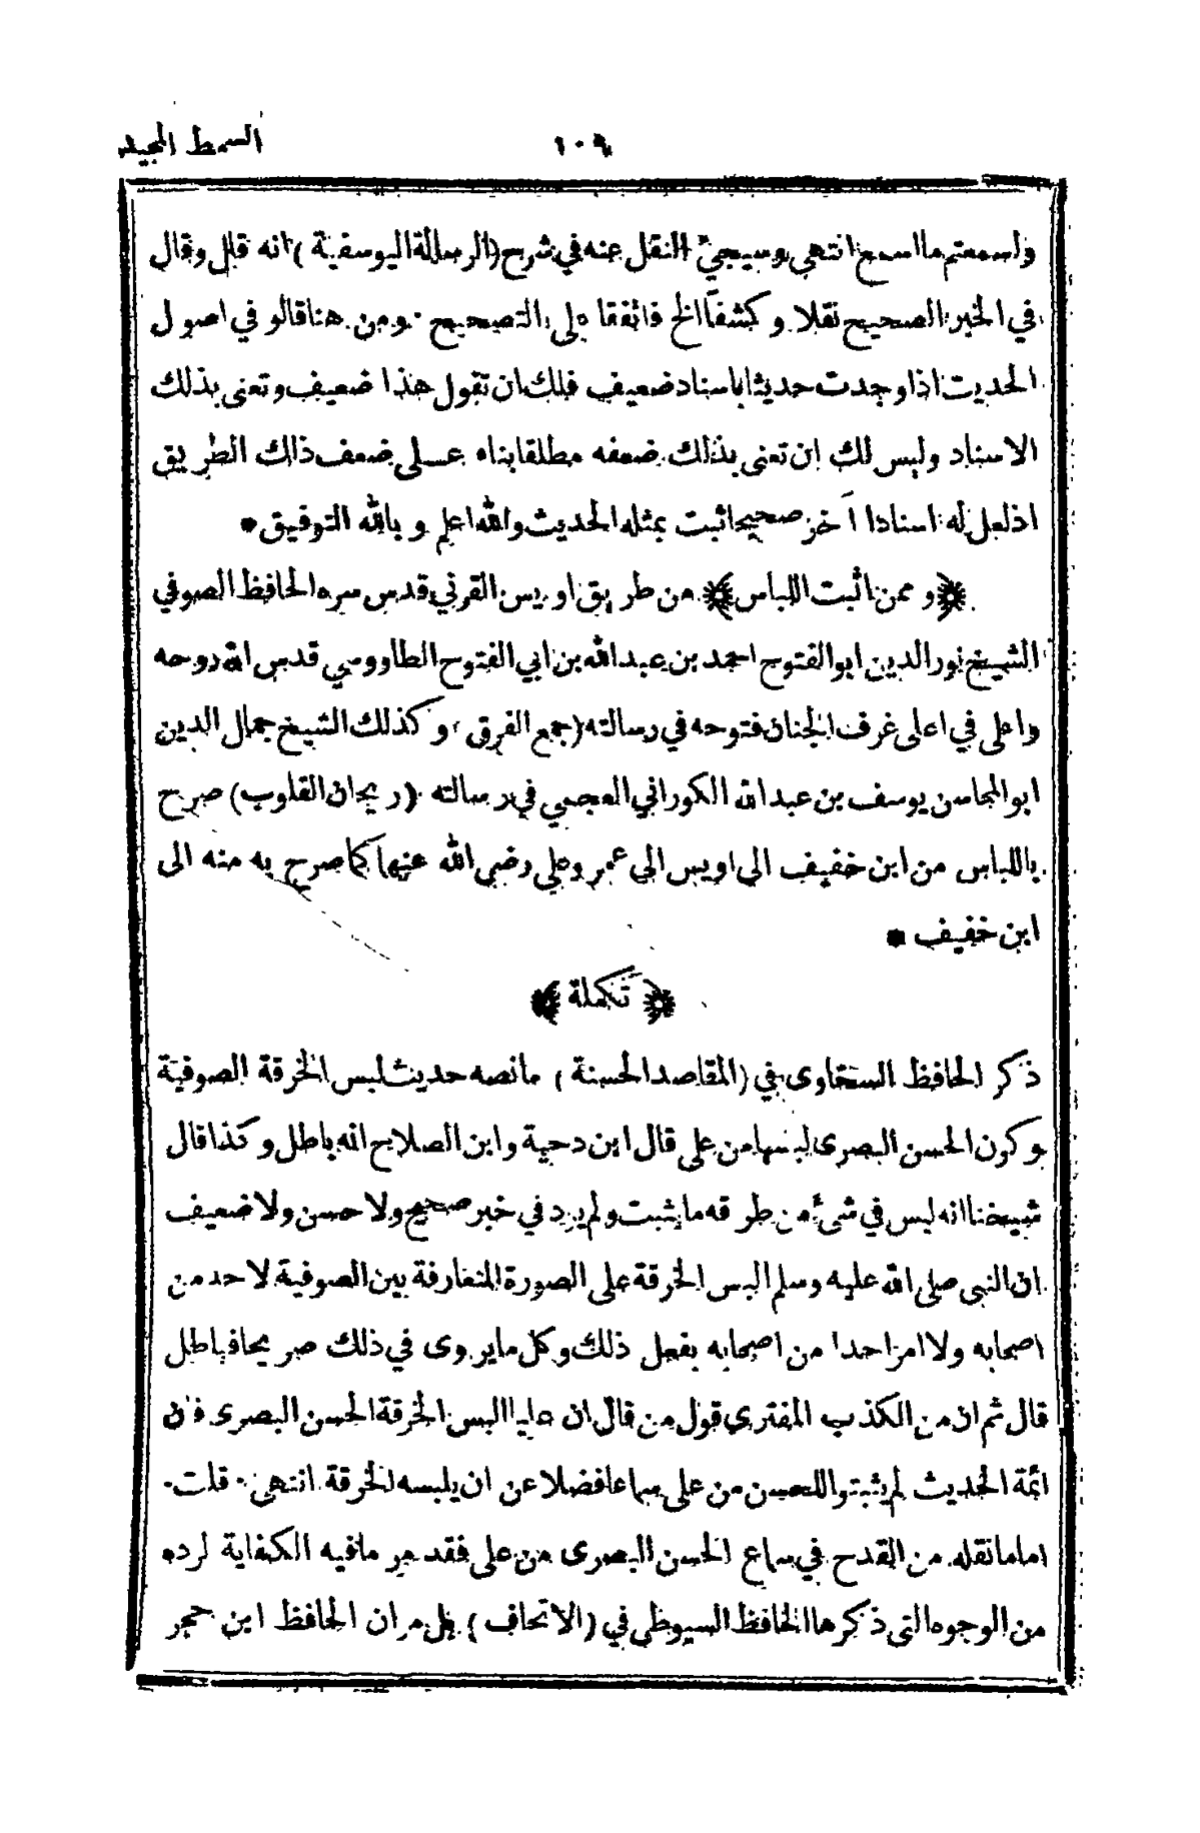 ١٠٩ السمط المجيد
ولسمعتم ما اسمع انتهى وسيجيءُ النقل عنه في شرح (الرسالة اليوسفية) انه قال وقال
في الخبر الصحيح نقلا وكشفاً الخ فاتفقا على التصحيح ٠ ومن هنا قالو في اصول
الحديث اذا وجدت حديثا باسناد ضعيف فلك ان تقول هذا ضعيف وتعنى بذلك
الاسناد وليس لك ان تعنى بذلك ضعفه مطلقا بناه عـلى ضعف ذاك الطريق
اذ لعل له اسنادا آخر صحيحا ثبت بمثله الحديث والله اعلم وبالله التوفيق *
﴿وممن اثبت اللباس﴾ من طريق اويس القرني قدس سره الحافظ الصوفي
الشيخ نور الدين ابو الفتوح احمد بن عبد الله بن ابي الفتوح الطاووسي قدس الله روحه
واعلى في اعلى غرف الجنان فتوحه في رسالته (جمع الفرق) وكذلك الشيخ جمال الدين
ابو المحاسن يوسف بن عبد الله الكوراني العجمي في رسالته (ريحان القلوب) صرح
باللباس من ابن خفيف الى اويس الى عمر وعلي رضي الله عنهما كما صرح به منه الى
ابن خفيف *
﴿تكملة﴾
ذكر الحافظ السخاوى في (المقاصد الحسنة) ما نصه حديث لبس الخرقة الصوفية
وكون الحسن البصرى لبسها من على قال ابن دحية وابن الصلاح انه باطل وكذا قال
شيخنا انه ليس في شئ من طرقه ما يثبت ولم يرد في خبر صحيح ولا حسن ولا ضعيف
ان النبي صلى الله عليه وسلم البس الخرقة على الصورة المتعارفة بين الصوفية لاحد من
اصحابه ولا امر احدا من اصحابه بفعل ذلك وكل ما يروى في ذلك صريحا فباطل
قال ثم ان من الكذب المفترى قول من قال ان عليا البس الخرقة الحسن البصرى فان
ائمة الحديث لم يثبتوا للحسن من على سماعا فضلا عن ان يلبسه الخرقة انتهى ٠ قلت ٠
اما ما نقله من القدح في سماع الحسن البصرى من على فقد مر ما فيه الكفاية لرده
من الوجوه التى ذكرها الحافظ السيوطى في (الاتحاف) بل مر ان الحافظ ابن حجر